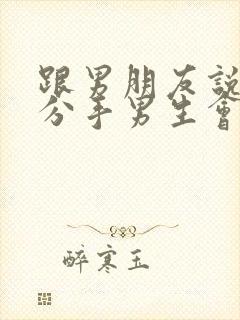 跟男朋友說
分手男生會
醉寒玉